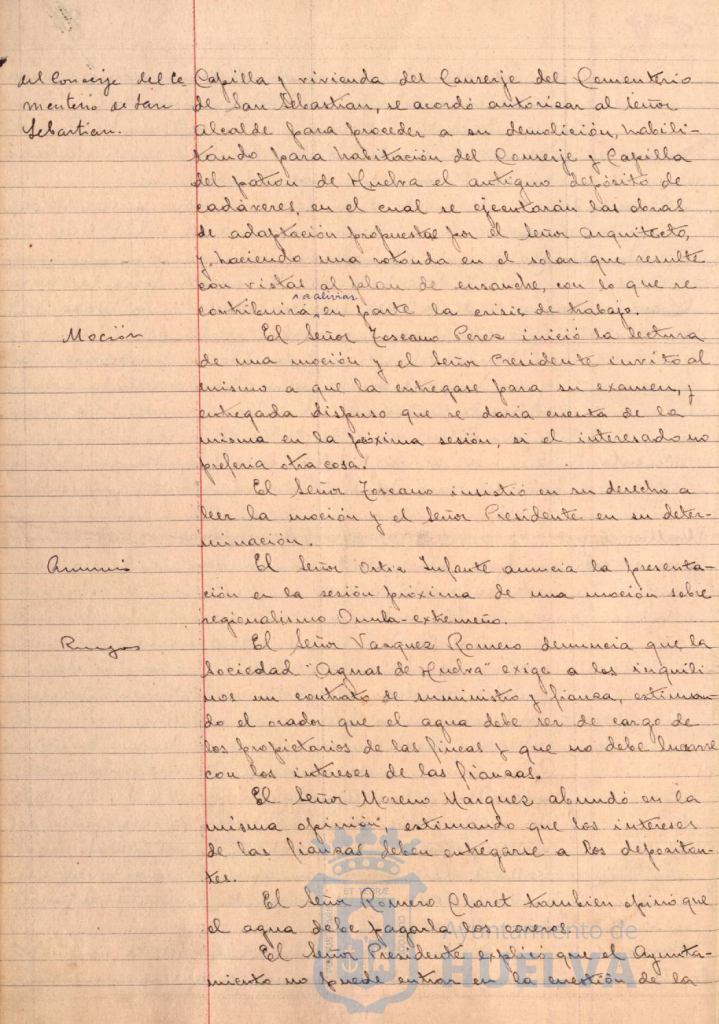 del Conserje del Ce
menterio de San
Sebastian.
Capilla y vivienda del Conserje del Cementerio
de San Sebastian, se acordó autorizar al Señor
Alcalde para proceder a su demolición, habili-
tando para habitación del Conserje y Capilla
del patrón de Huelva el antiguo depósito de
cadáveres, en el cual se ejecutarán las obras
de adaptación propuestas por el Señor Arquitecto,
y, haciendo una rotonda en el solar que resulte
con vistas al plan de ensanche, con lo que se
a aliviar
contribuirá en parte la crisis de trabajo.
Moción
El Señor Toscano Perez inició la lectura
de una moción y el Señor Presidente invitó al
mismo a que la entregase para su examen, y
entregada dispuso que se daria cuenta de la
misma en la próxima sesión, si el interesado no
preferia otra cosa.
El Señor Toscano insistió en su derecho a
leer la moción y el Señor Presidente en su deter-
minación.
Anuncio
El Señor Ortiz Infante anuncia la presenta-
ción en la sesión próxima de una moción sobre
regionalismo Onuba-extremeño.
Ruegos
El Señor Vazquez Romero denuncia que la
Sociedad "Aguas de Huelva" exige a los inquili-
nos un contrato de suministro y fianza, estiman-
do el orador que el agua debe ser de cargo de
los propietarios de las fincas y que no debe lucrarse
con los intereses de las fianzas.
El Señor Moreno Marquez abundó en la
misma opinión, estimando que los intereses
de las fianzas deben entregarse a los depositan-
tes.
El Señor Romero Claret tambien opinó que
el agua debe pagarla los caseros.
El Señor Presidente explicó que el Ayunta-
miento no puede entrar en la cuestión de la
Ayuntamiento de
HUELVA